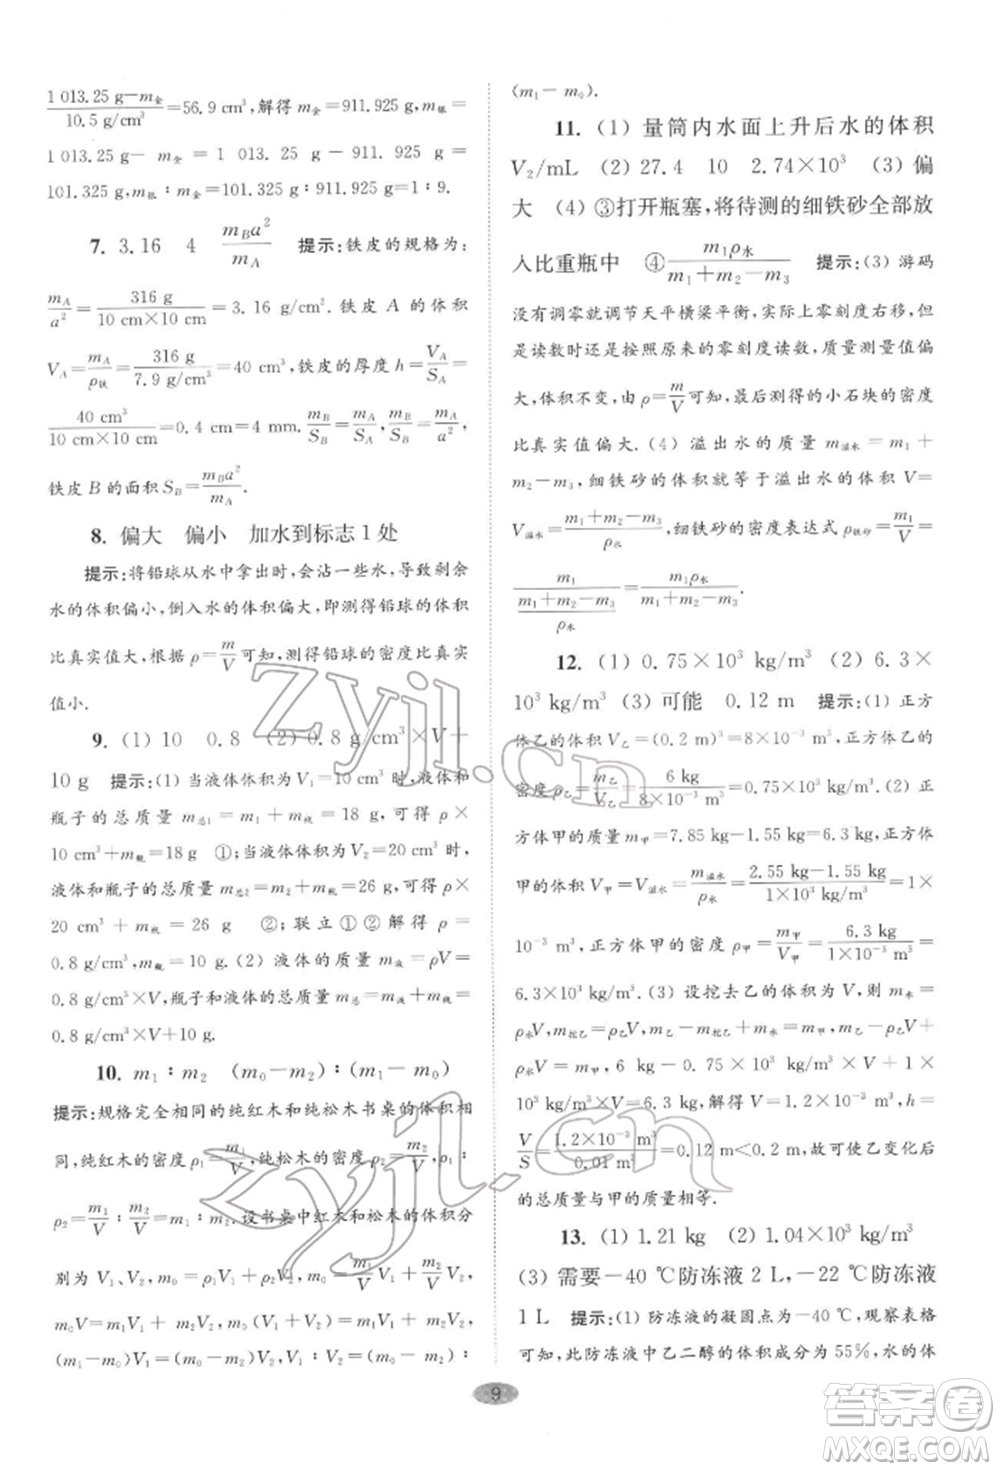 1 013.25 g−m金/10.5 g/cm³=56.9 cm³,解得 m金=911.925 g,m银=
1 013.25 g − m金 = 1 013.25 g − 911.925 g =
101.325 g,m银∶m金=101.325 g∶911.925 g=1∶9.
7. 3.16 4 mBa²/mA 提示:铁皮的规格为:
mA/a²=316 g/10 cm×10 cm=3.16 g/cm². 铁皮 A 的体积
VA=mA/ρ铁=316 g/7.9 g/cm³=40 cm³;铁皮的厚度 h=VA/SA=
40 cm³/10 cm×10 cm=0.4 cm=4 mm. mB/SB=mA/SA=mA/a²,
铁皮 B 的面积 SB=mBa²/mA.
8. 偏大 偏小 加水到标志 1 处
提示:将铅球从水中拿出时,会沾一些水,导致剩余
水的体积偏小,倒入水的体积偏大,即测得铅球的体积
比真实值大,根据 ρ=m/V可知,测得铅球的密度比真实
值小.
9. (1) 10 0.8 (2) 0.8 g/cm³×V+
10 g 提示:(1) 当液体体积为 V₁=10 cm³ 时,液体和
瓶子的总质量 m总1=m₁+m瓶=18 g,可得 ρ×
10 cm³+m瓶=18 g ①;当液体体积为 V₂=20 cm³ 时,
液体和瓶子的总质量 m总2=m₂+m瓶=26 g,可得 ρ×
20 cm³ + m瓶 = 26 g ②;联立①②解得 ρ =
0.8 g/cm³. (2) 液体的质量 m液=ρV=
0.8 g/cm³×V,瓶子和液体的总质量 m总=m液+m瓶=
0.8 g/cm³×V+10 g.
10. m₁∶m₂ (m₀−m₂)∶(m₁−m₀)
提示:规格完全相同的纯红木和纯松木书桌的体积相
同,纯红木的密度 ρ₁=m₁/V,纯松木的密度 ρ₂=m₂/V,ρ₁∶
ρ₂=m₁/V∶m₂/V=m₁∶m₂.设书桌中红木和松木的体积分
别为 V₁、V₂,m₀=ρ₁V₁+ρ₂V₂=m₁/V V₁+m₂/V V₂,
m₀V=m₁V₁+m₂V₂,m₀(V₁+V₂)=m₁V₁+m₂V₂,
(m₀−m₁)V₁=(m₂−m₀)V₂,V₁∶V₂=(m₀−m₂)∶
(m₁−m₀).
11. (1) 量筒内水面上升后水的体积
V₂/mL (2) 27.4 10 2.74×10³ (3) 偏
大 (4) ③打开瓶塞,将待测的细铁砂全部放
入比重瓶中 ④m₁ρ水/m₁+m₂−m₃ 提示:(3) 游码
没有调零就调节天平横梁平衡,实际零刻度右移,但
是读数时还是按照原来的零刻度读数,质量测量值偏
大,体积不变,由 ρ=m/V可知,最后测得的小石块的密度
比真实值偏大. (4) 溢出水的质量 m溢水=m₁+
m₂−m₃,细铁砂的体积等于溢出水的体积 V=
V溢水=m₁+m₂−m₃/ρ水,细铁砂的密度表达式 ρ铁砂=m₁/V=
m₁/(m₁+m₂−m₃/ρ水)=m₁ρ水/m₁+m₂−m₃.
12. (1) 0.75×10³ kg/m³ (2) 6.3×
10³ kg/m³ (3) 可能 0.12 m 提示:(1) 正方
体乙的体积 V乙=(0.2 m)³=8×10⁻³ m³,正方体乙的
密度 ρ乙=m乙/V乙=6 kg/8×10⁻³ m³=0.75×10³ kg/m³. (2) 正
方体甲的质量 m甲=7.85 kg−1.55 kg=6.3 kg,正方体
甲的体积 V甲=V溢水=m溢水/ρ水=2.55 kg−1.55 kg/1×10³ kg/m³=1×
10⁻³ m³,正方体甲的密度 ρ甲=m甲/V甲=6.3 kg/1×10⁻³ m³=
6.3×10³ kg/m³. (3) 设挖去乙的体积为 V,则 m水=
ρ水V,m挖乙=ρ乙V,m乙−m挖乙+m水=m甲,m乙−ρ乙V+
ρ水V=m甲,6 kg−0.75×10³ kg/m³×V+1×
10³ kg/m³×V=6.3 kg,解得 V=1.2×10⁻³ m³,h=
V/S=1.2×10⁻³ m³/0.01 m²=0.12 m>0.2 m,故可使乙变化后
的总质量与甲的质量相等.
13. (1) 1.21 kg (2) 1.04×10³ kg/m³
(3) 需要−40 ℃防冻液 2 L,−22 ℃防冻液
1 L 提示:(1) 防冻液的凝固点为−40 ℃,观察表格
可知,此防冻液中乙二醇的体积成分为 55%,水的体
9
zyjl.cn
zyjl.cn
答案圈
MXQE.COM